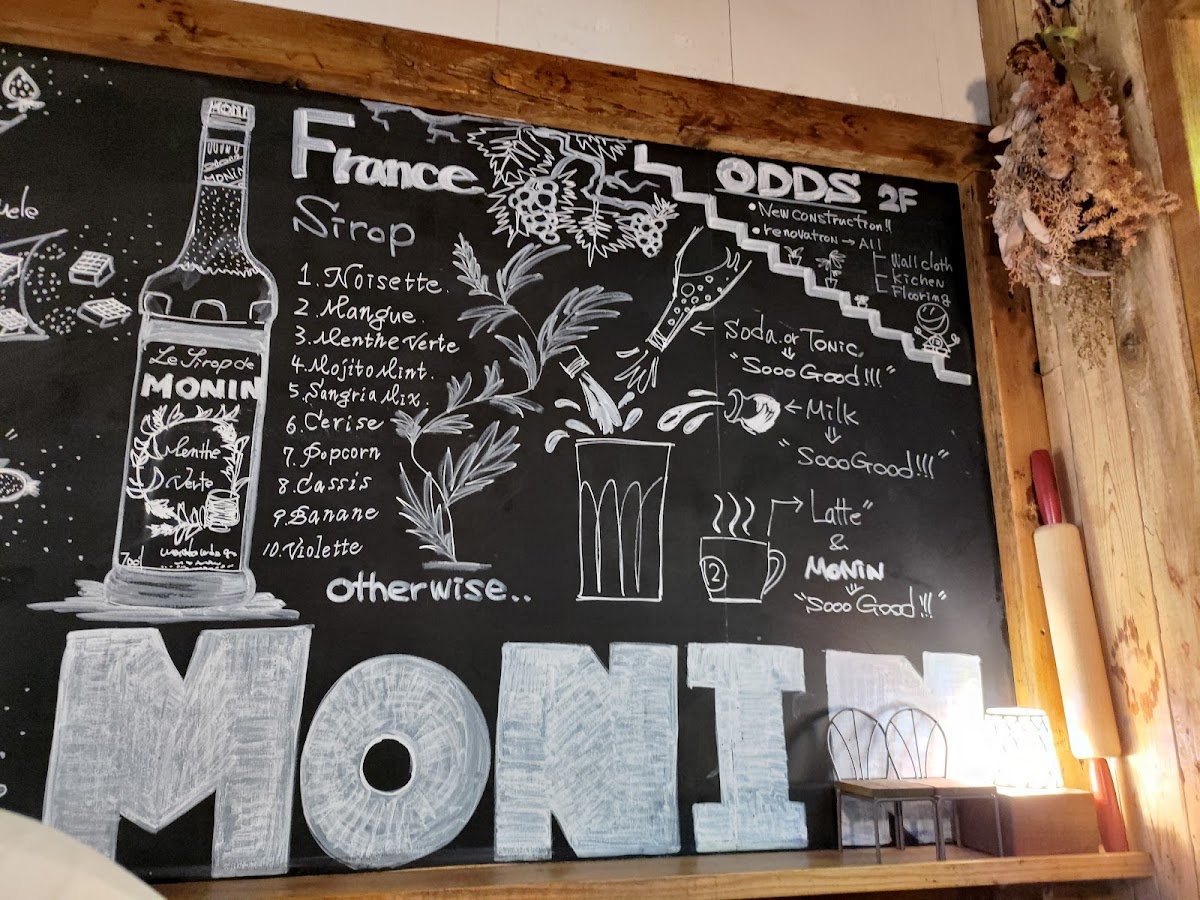 uele
MONI
MONIN
Le Sirop de
MONIN
Menthe
Verte
70cl
France
Sirop
1. Noisette.
2. Mangue.
3. Menthe Verte
4. Mojito Mint.
5. Sangria Mix.
6. Cerise
7. Popcorn
8. Cassis
9. Banane
10. Violette
otherwise..
ODDS 2F
• New construction!!
• renovation → All
Wall cloth
kichen
Flooring
← Soda. or Tonic
"Sooo Good!!!"
← Milk
"Sooo Good!!!"
Latte"
&
MONIN
"Sooo Good!!!"
2
MONIN